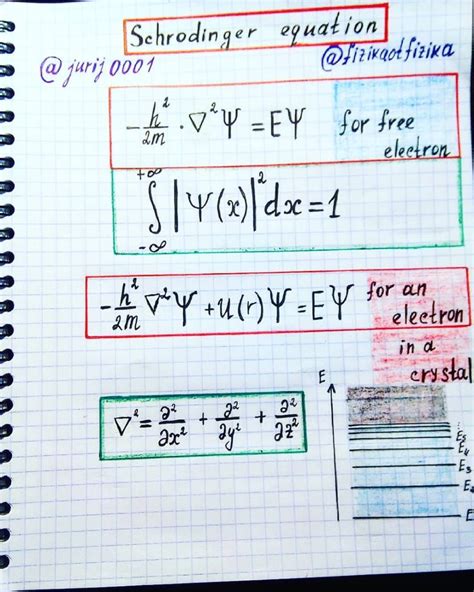 Schrodinger equation
@jurij0001 @fizikaotfizika
-ħ²/2m · ∇²Ψ = EΨ for free
electron
+∞
∫ |Ψ(x)|² dx = 1
-∞
-ħ²/2m ∇²Ψ + U(r)Ψ = EΨ for an
electron
in a
crystal
E
∇² = ∂²/∂x² + ∂²/∂y² + ∂²/∂z²
E₅
E₄
E₃
E
E